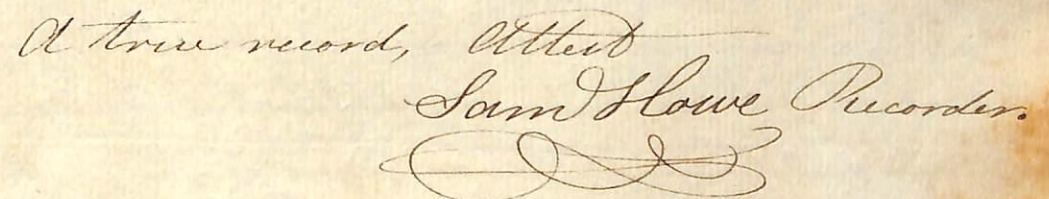 A true record, Attest
Saml Howe Recorder.